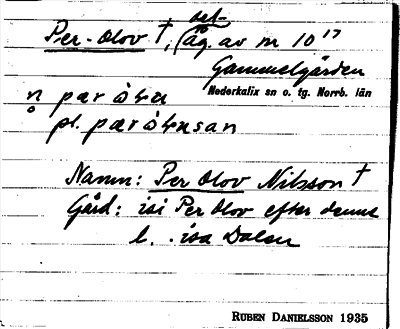 Per-Olov †, (äg. av m 10¹⁷
Gammelgården
Nederkalix sn o. tg. Norrb. län
pl.
Namn: Per Olov Nilsson †
Gård: isi Per Olov efter denne
l. isa Dalen
RUBEN DANIELSSON 1935